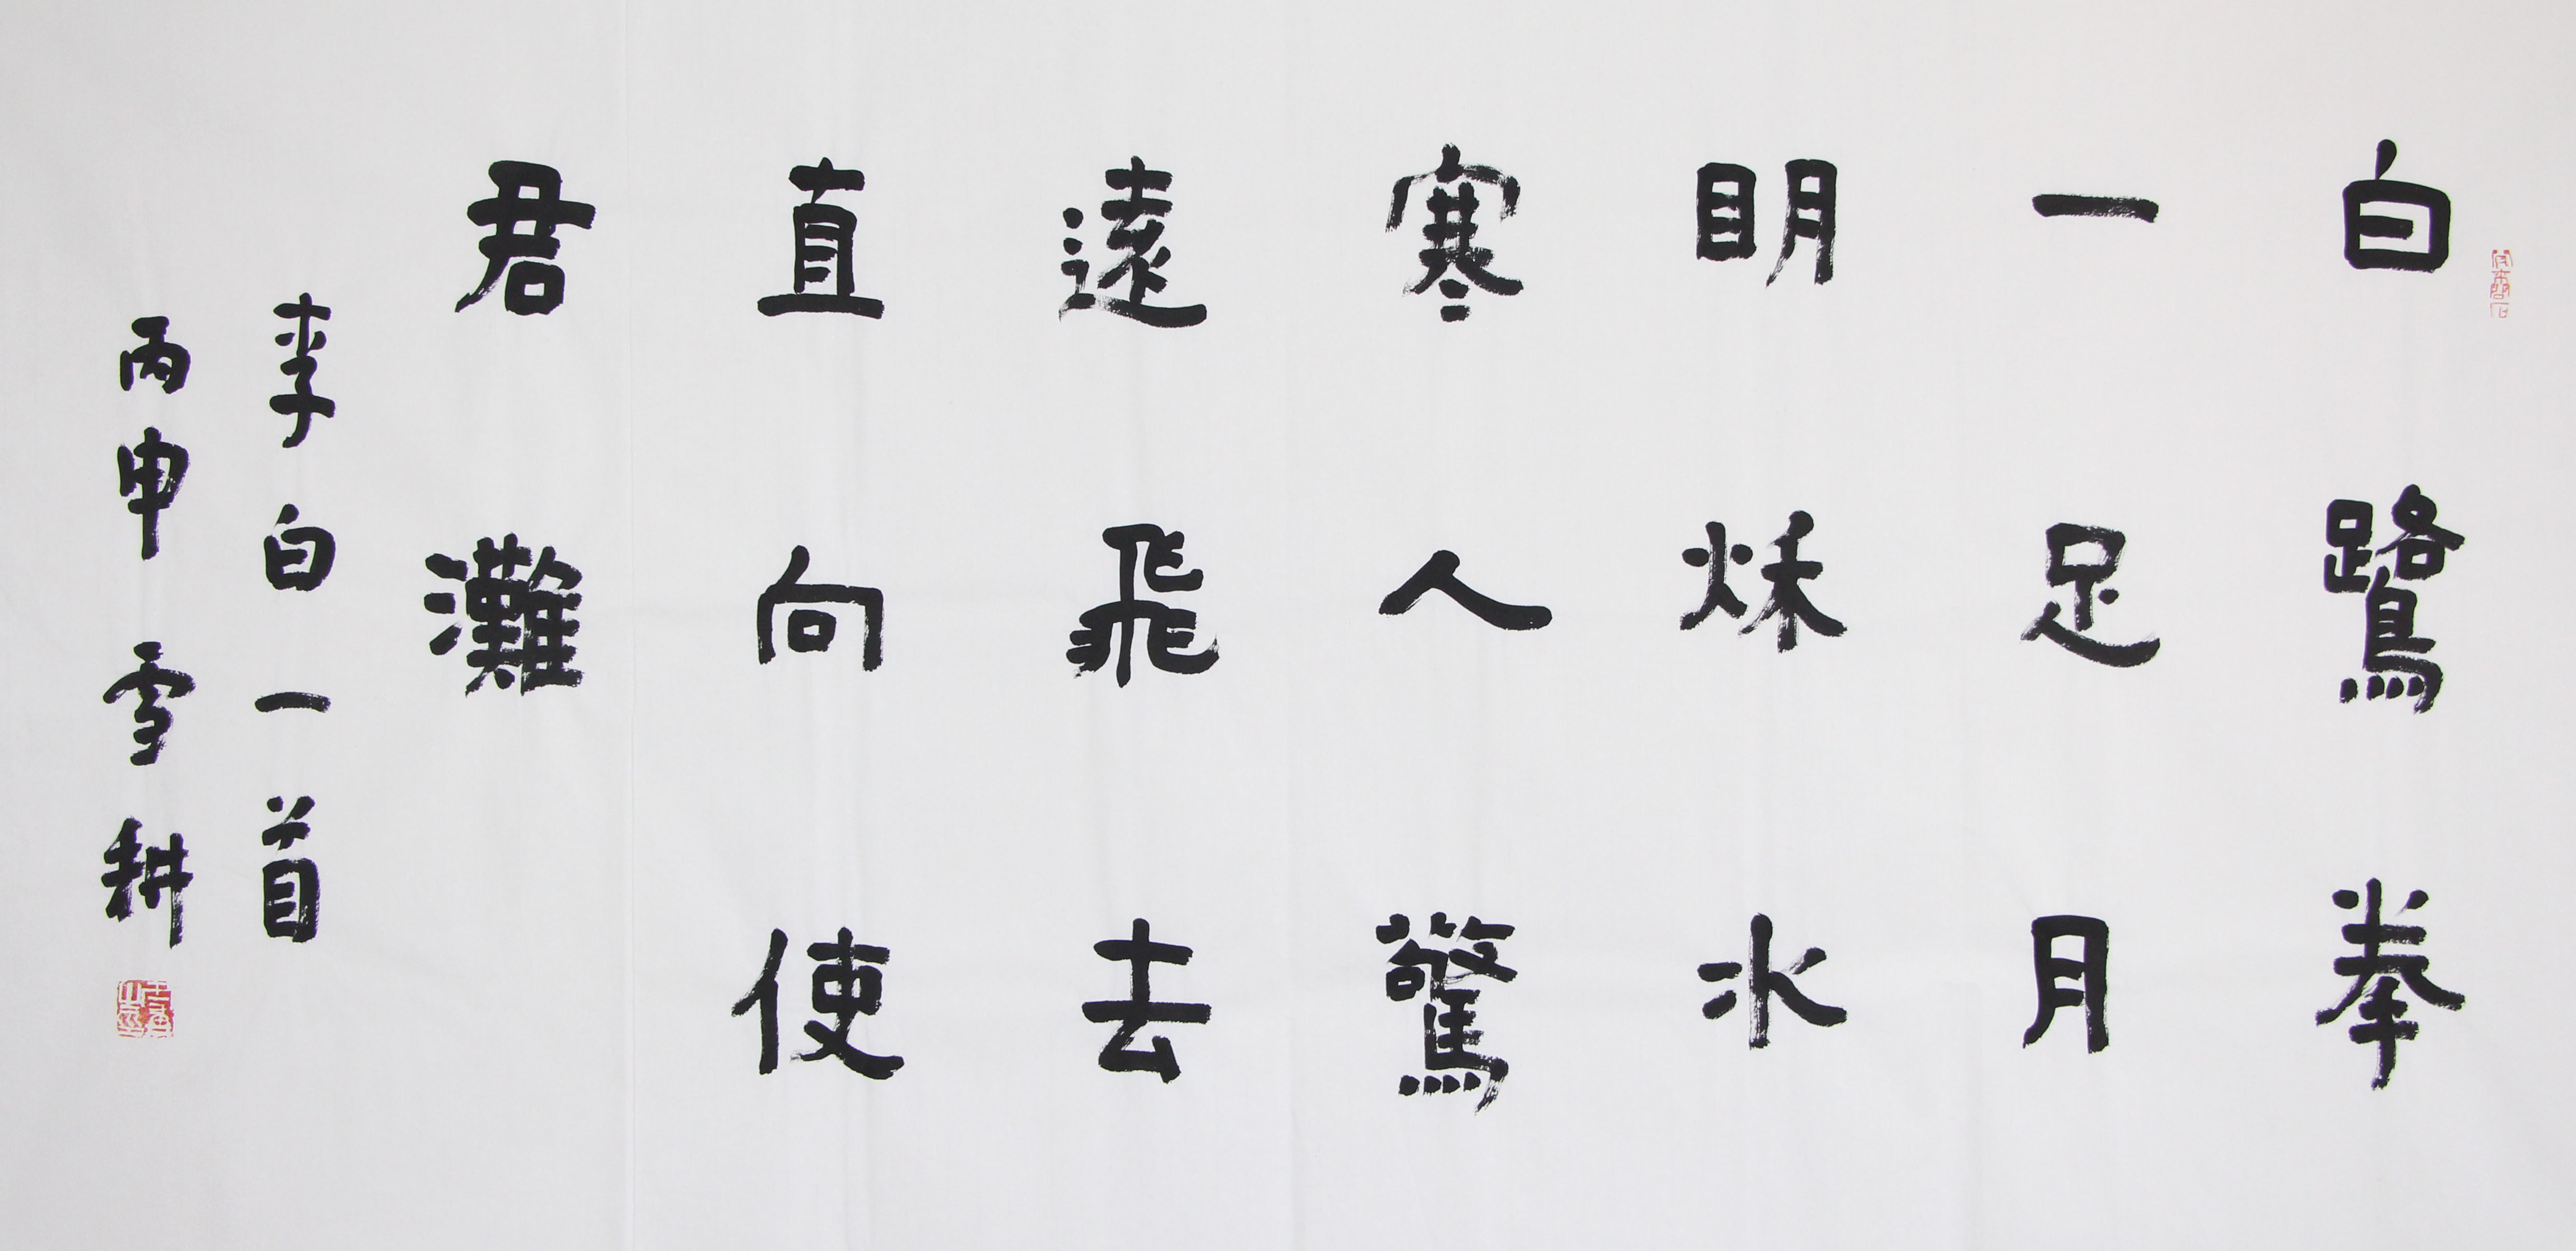 白鷺拳
一足月
明秌水
寒人驚
遠飛去
直向使
君灘
李白一首
丙申雪耕